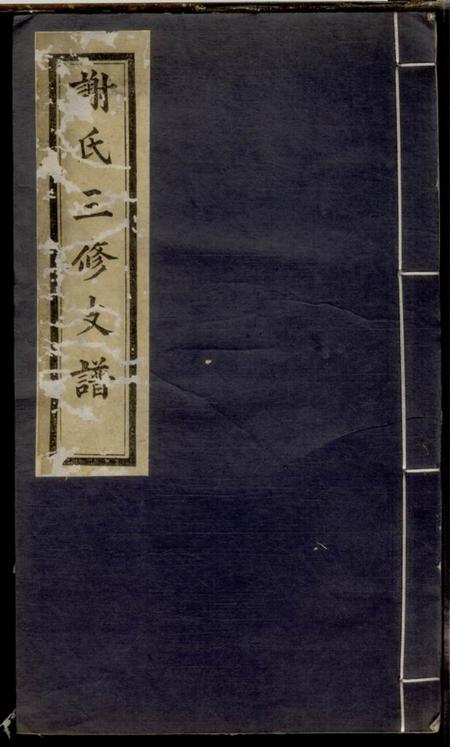 謝氏三修支譜